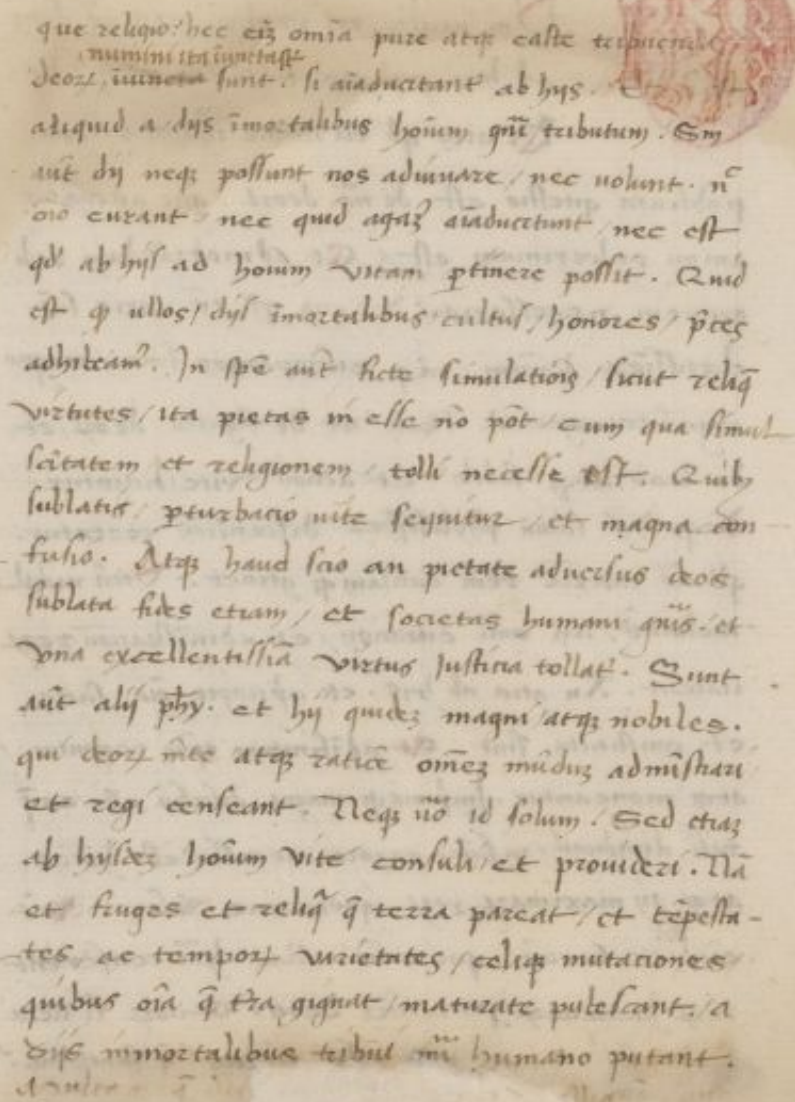 que religio? hec eiz omīa pure atqꝫ caste tribuenda
numini ita iunctast
deoꝝ iuncta sunt. si aīaduertant̄ ab hijs. Et si est
aliquid a dijs īmortalibus hoīum gn̄i tributum. Sin
aūt dij neqꝫ possunt nos adiuuare / nec uolunt. nᶜ
oīo curant / nec quid agaꝰ aīaduertunt / nec est
qd' ab hijs ad hoīum vitam ꝑtinere possit. Quid
est ꝙ ullos / dijs īmortalibus cultus / honores / p̄ces
adhibeamꝰ. In spē aūt ficte simulatiōis / sicut reliq̄
virtutes / ita pietas in esse nō pōt / cum qua simul
sc̄itatem et religionem / tolli necesse est. Quibꝫ
sublatis ꝑturbacio uite sequitur / et magna con
fusio. Atqꝫ haud scio an pietate aduersus deos
sublata fides etiam / et societas humani gn̄is. et
vna excellentissīa virtus Justicia tollatꝰ. Sunt
aūt alij ph̄y. et hij quideꝫ magni atqꝫ nobiles.
qui deoꝝ m̄te atqꝫ ratiōe om̄eꝫ mūduꝫ adminīstrari
et regi censeant. Neqꝫ u̅o id solum. Sed etiaꝫ
ab hijsdeꝫ hoīum vite consuli et prouideri. Nā
et fruges et reliq̄ q̄ terra pareat / et tēpesta-
tes ac tempoꝝ varietates / celiqꝫ mutaciones
quibus oīa q̄ t̄ra gignat / maturate pubescant. / a
dijs immortalibus tribui humano putant.